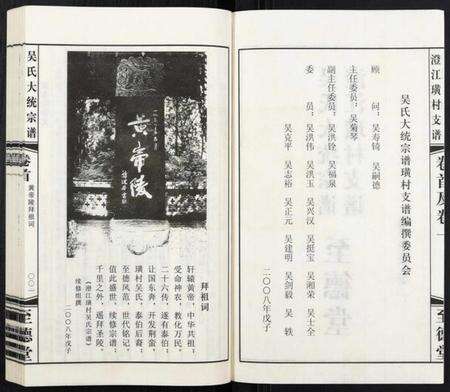 澄江璜村支谱
卷首及卷一
至德堂
吴氏大统宗谱璜村支谱编撰委员会
顾问：吴寿镜 吴嗣德
主任委员：吴菊琴
副主任委员：吴洪铨 吴福泉
委员：吴洪伟 吴洪玉 吴兴汉 吴挺宝 吴湘荣 吴士全
吴克平 吴志裕 吴正元 吴建明 吴剑毅 吴轶
二〇〇八年戊子
黄帝陵
拜祖词
轩辕黄帝，中华共祖；
受命神农，教化万民。
二十六传，遂有泰伯；
让国东奔，开发荆蛮。
璜村吴氏，泰伯后裔；
至德风范，世代铭记。
值此盛世，续修宗谱；
千里之外，遥拜圣陵。
《澄江璜村吴氏宗谱》
续修组撰
二〇〇八年戊子
吴氏大统宗谱
卷首
黄帝陵拜祖词
至德堂